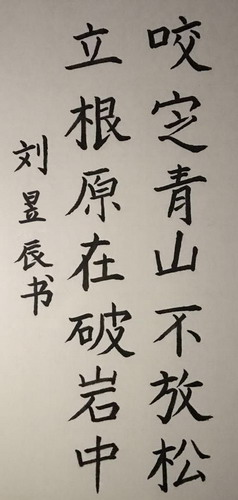 咬定青山不放松
立根原在破岩中
刘昱辰书